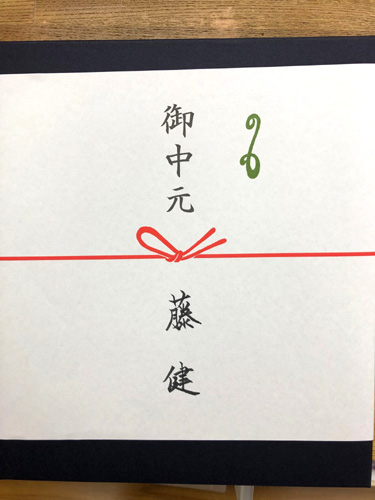 御中元
藤健